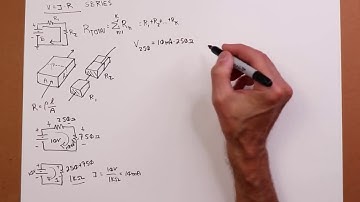 V=I·R SERIES
R₁
R₂
R_TOTAL = Σ Rₙ = R₁+R₂+...+Rₖ
K
n=1
V_250 = 10mA·250Ω
R₂
R₁
R = ρℓ/A
250Ω
10V
750Ω
10V
250+750
1KΩ
I = 10V/1KΩ = 10mA